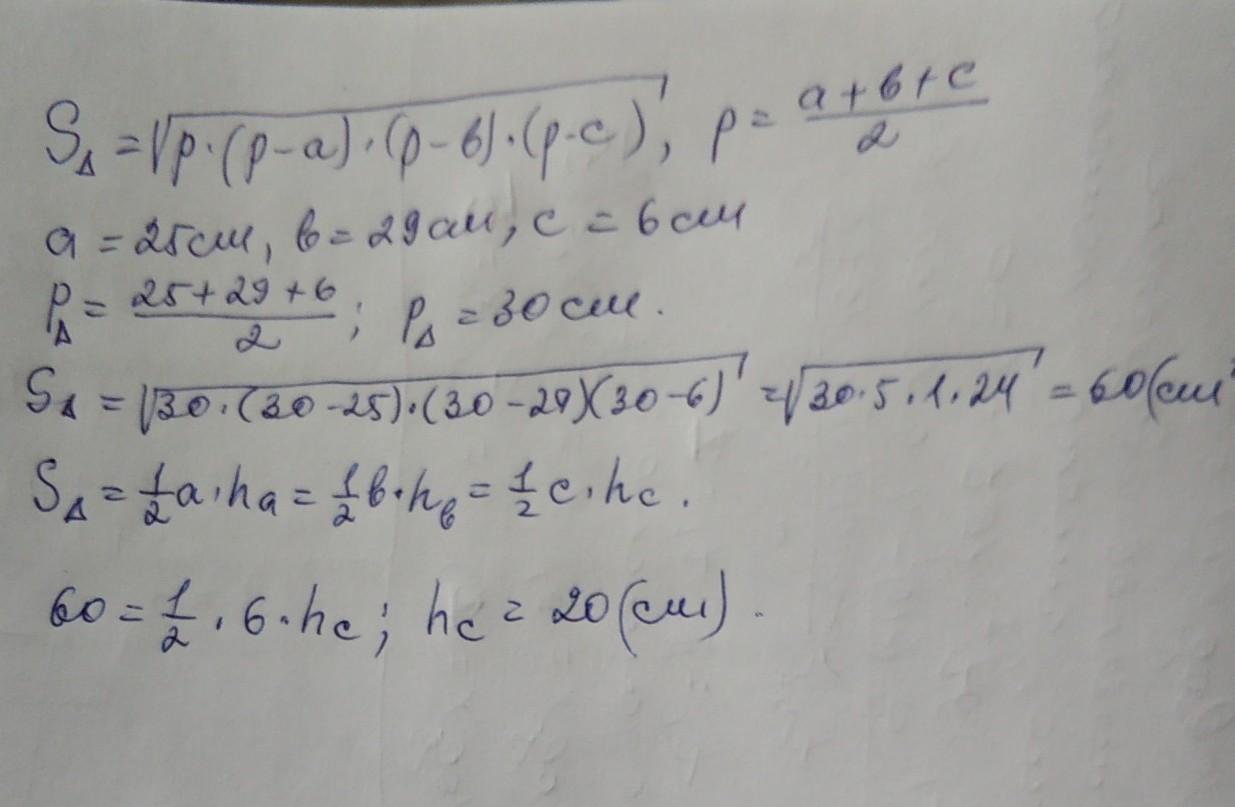 S_Δ = √(p·(p-a)·(p-в)·(p-c)), p = (a+в+c)/2
a = 25см, в = 29см, c = 6см
p_Δ = (25+29+6)/2; p_Δ = 30см.
S_Δ = √(30·(30-25)·(30-29)(30-6)) = √(30·5·1·24) = 60(см
S_Δ = 1/2 a·h_a = 1/2 в·h_в = 1/2 c·h_c.
60 = 1/2·6·h_c; h_c = 20(см).